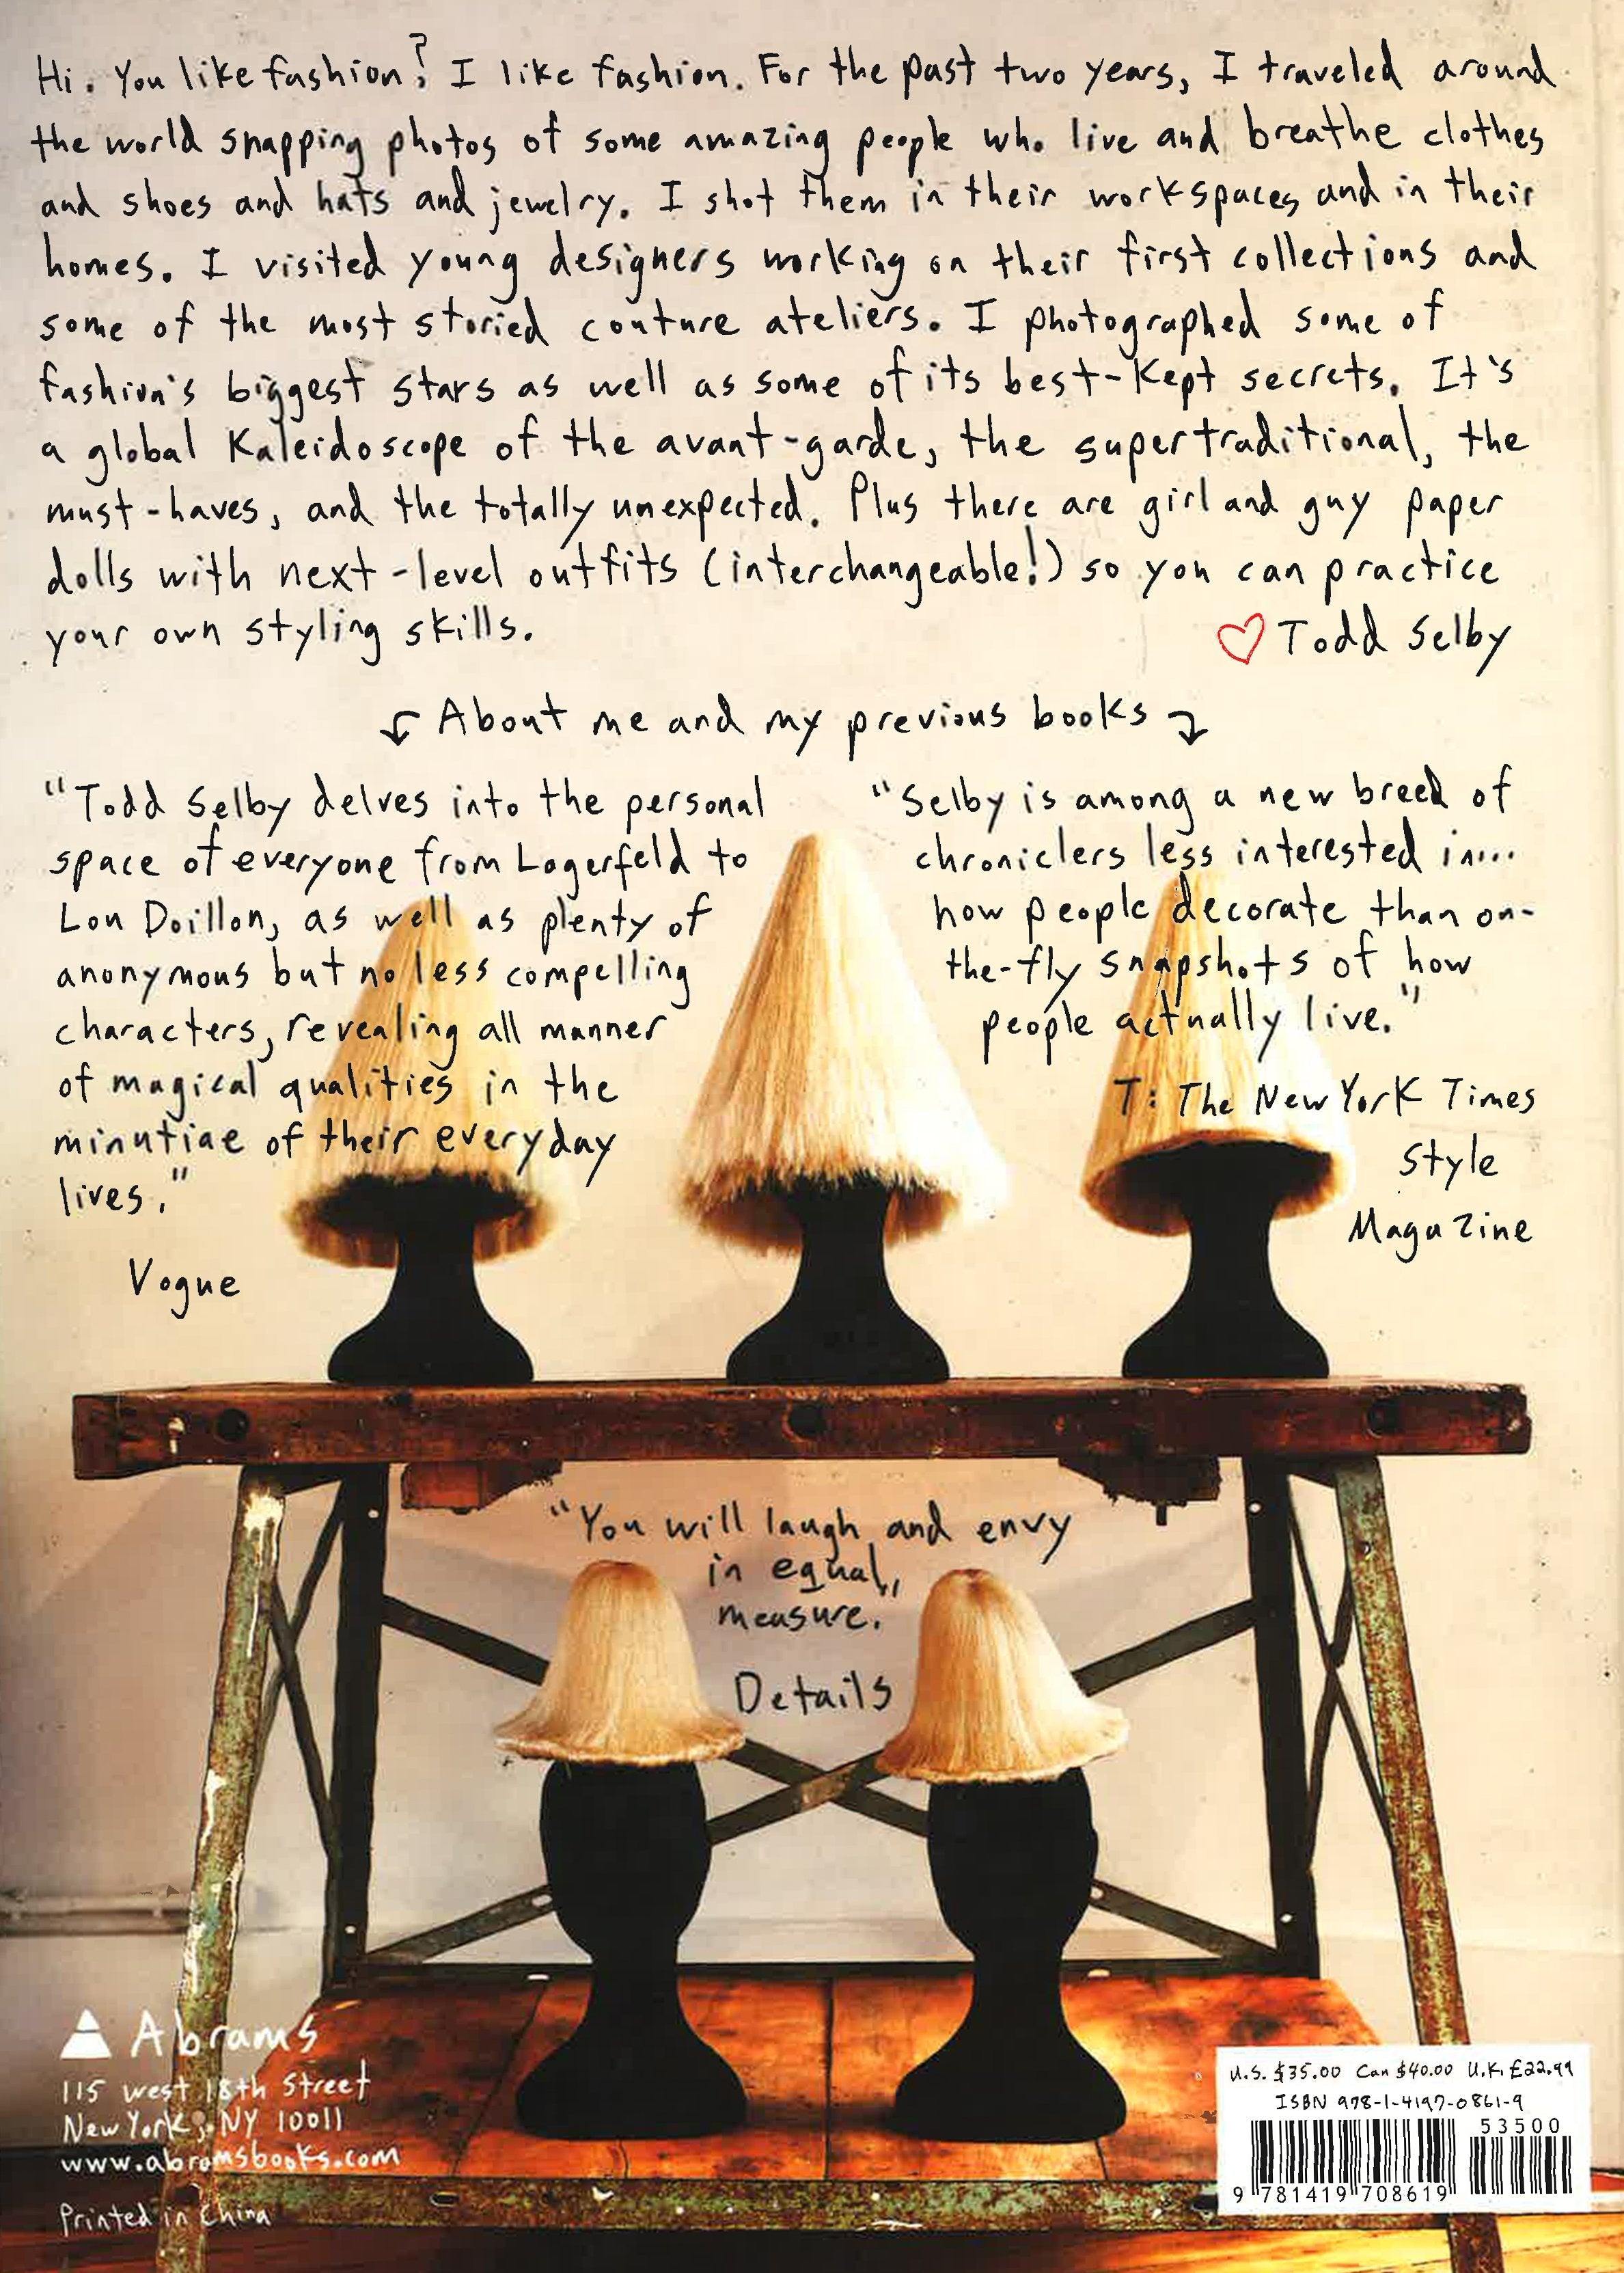 Hi. You like fashion? I like fashion. For the past two years, I traveled around
the world snapping photos of some amazing people who live and breathe clothes
and shoes and hats and jewelry. I shot them in their workspaces and in their
homes. I visited young designers working on their first collections and
some of the most storied couture ateliers. I photographed some of
fashion's biggest stars as well as some of its best-kept secrets. It's
a global kaleidoscope of the avant-garde, the supertraditional, the
must-haves, and the totally unexpected. Plus there are girl and guy paper
dolls with next-level outfits (interchangeable!) so you can practice
your own styling skills.
♡ Todd Selby
About me and my previous books
"Todd Selby delves into the personal
space of everyone from Lagerfeld to
Lou Doillon, as well as plenty of
anonymous but no less compelling
characters, revealing all manner
of magical qualities in the
minutiae of their everyday
lives."
Vogue
"Selby is among a new breed of
chroniclers less interested in...
how people decorate than on-
the-fly snapshots of how
people actually live."
T: The New York Times
Style
Magazine
"You will laugh and envy
in equal
measure."
Details
Abrams
115 West 18th Street
New York, NY 10011
www.abramsbooks.com
Printed in China
U.S. $35.00 Can $40.00 U.K. £22.99
ISBN 978-1-4197-0861-9
53500
9 781419 708619